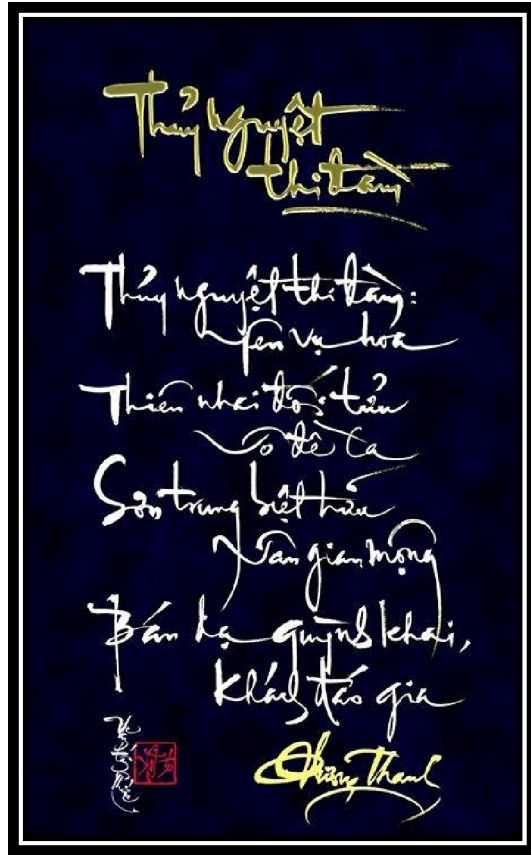 Thủy nguyệt
thi đàn
Thủy nguyệt thi đàn:
yên vụ hoa
Thiên nhai đối tửu
vô đề ca
Sơn trung biệt hữu
nhân gian mộng
Bán dạ quỳnh khai,
khách đáo gia
Thanh